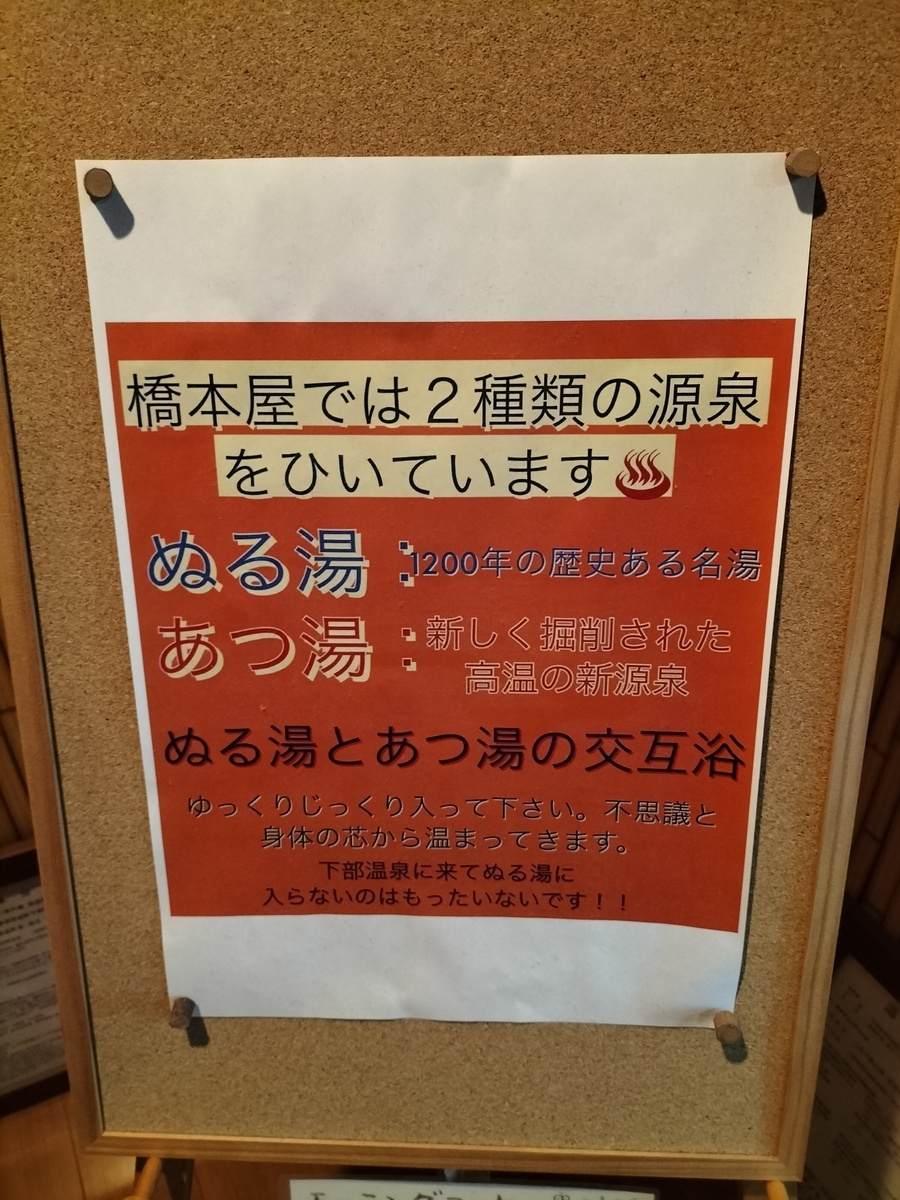 橋本屋では２種類の源泉
をひいています♨
ぬる湯：1200年の歴史ある名湯
あつ湯：新しく掘削された
高温の新源泉
ぬる湯とあつ湯の交互浴
ゆっくりじっくり入って下さい。不思議と
身体の芯から温まってきます。
下部温泉に来てぬる湯に
入らないのはもったいないです！！